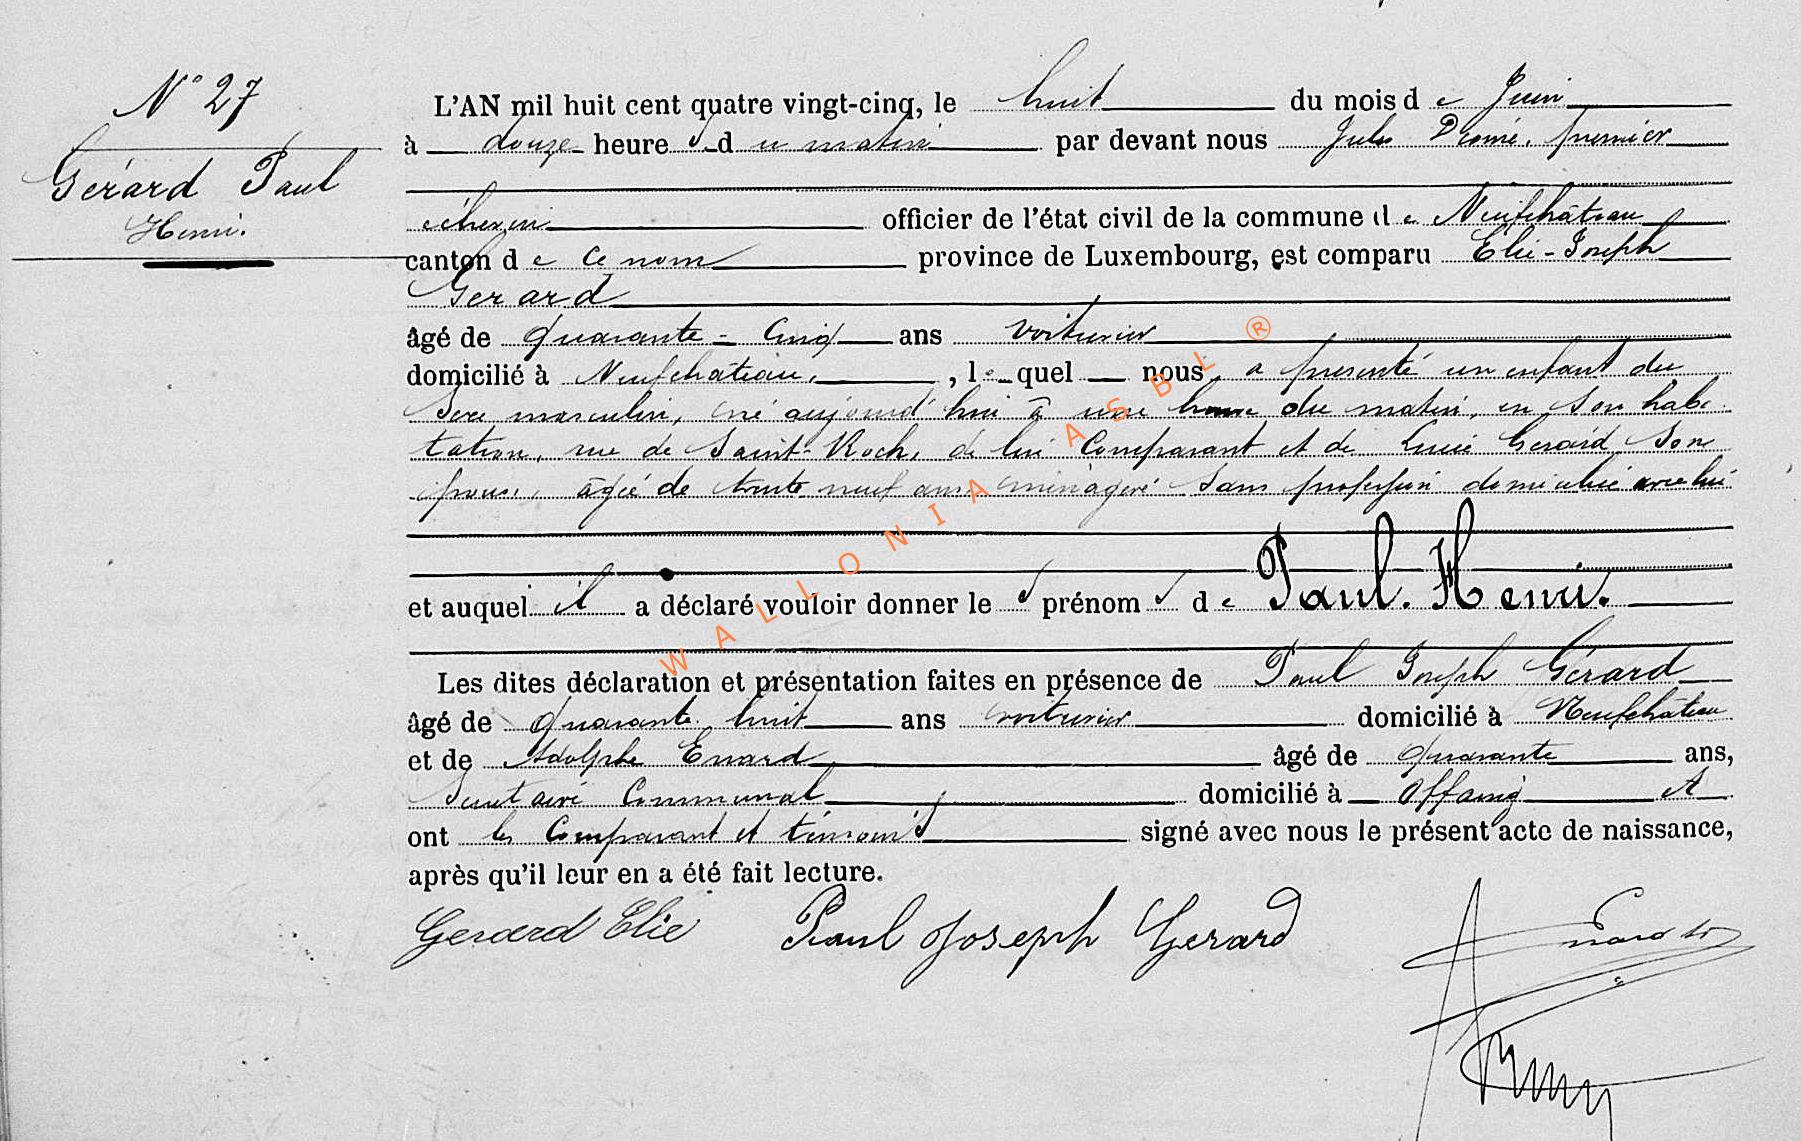 N° 27
Gérard Paul
Henri.
L'AN mil huit cent quatre vingt-cinq, le huit du mois de Juin
à douze heures du matin par devant nous Jules premier
échevin officier de l'état civil de la commune de Neufchâteau
canton de ce nom province de Luxembourg, est comparu Élie-Joseph
Gerard
âgé de quarante-cinq ans voiturier
domicilié à Neufchâteau, lequel nous a présenté un enfant du
sexe masculin, né aujourd'hui à une heure du matin, en son habi
tation, rue de Saint-Roch, de lui Comparant et de Lucie Gerard son
épouse, âgée de trente neuf ans ménagère sans profession domiciliée avec lui
et auquel il a déclaré vouloir donner les prénoms de Paul. Henri.
Les dites déclaration et présentation faites en présence de Paul Joseph Gérard
âgé de quarante huit ans voiturier domicilié à Neufchâteau
et de Adolphe Enard âgé de quarante ans,
Secrétaire Communal domicilié à Offaing et
ont les Comparant et témoins signé avec nous le présent acte de naissance,
après qu'il leur en a été fait lecture.
Gerard Elie Paul Joseph Gerard
WALLONIA ASBL ®